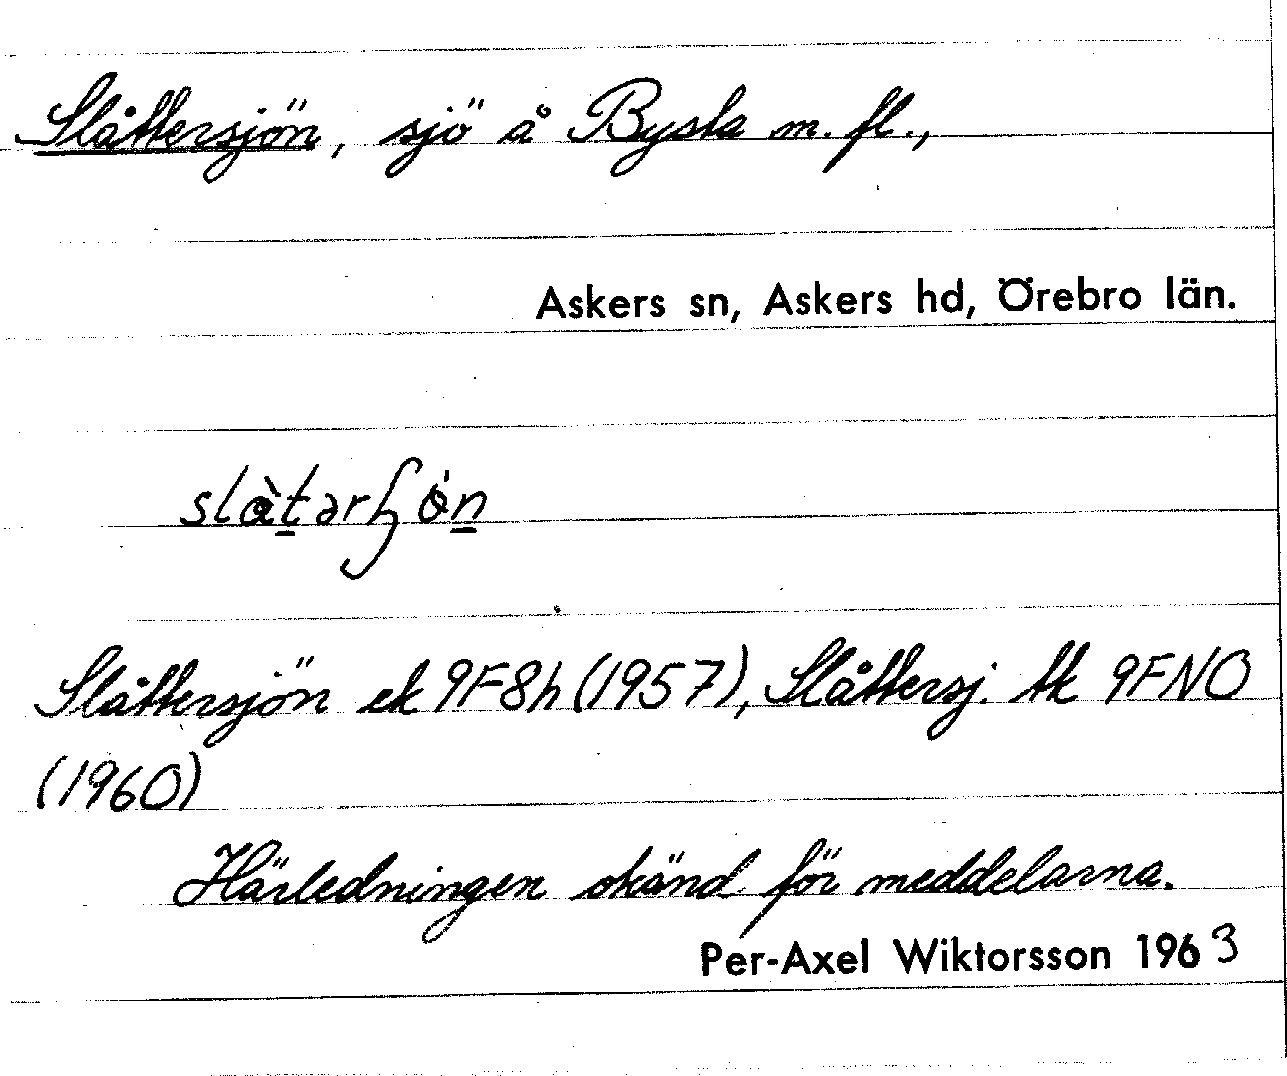 Slåttersjön, sjö å Bysta m. fl.,
Askers sn, Askers hd, Örebro län.
Slåttersjön ek 9F8h (1957), Slåttersj. tk 9FNO
(1960)
Härledningen okänd för meddelarna.
Per-Axel Wiktorsson 1963